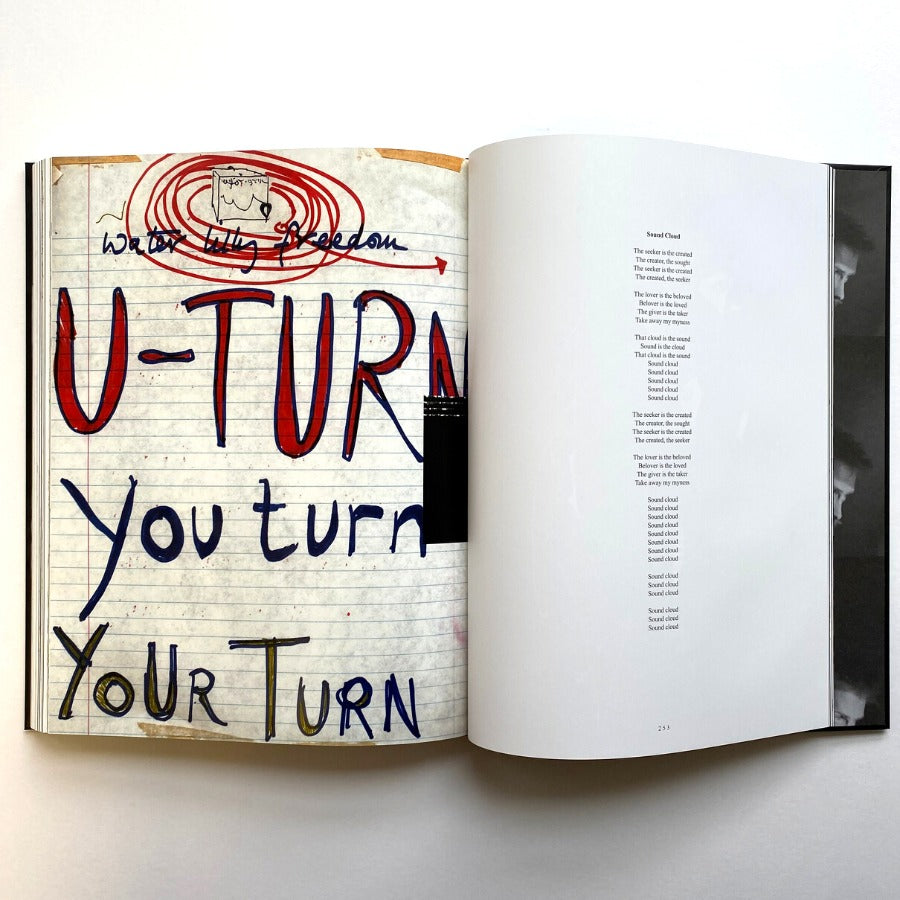 Water Why freedom
U-TURN
You turn
YOUR TURN
Sound Cloud
The seeker is the created
The creator, the sought
The seeker is the created
The created, the seeker
The lover is the beloved
Belover is the loved
The giver is the taker
Take away my myness
That cloud is the sound
Sound is the cloud
That cloud is the sound
Sound cloud
Sound cloud
Sound cloud
Sound cloud
Sound cloud
The seeker is the created
The creator, the sought
The seeker is the created
The created, the seeker
The lover is the beloved
Belover is the loved
The giver is the taker
Take away my myness
Sound cloud
Sound cloud
Sound cloud
Sound cloud
Sound cloud
Sound cloud
Sound cloud
Sound cloud
Sound cloud
Sound cloud
Sound cloud
Sound cloud
Sound cloud
Sound cloud
253